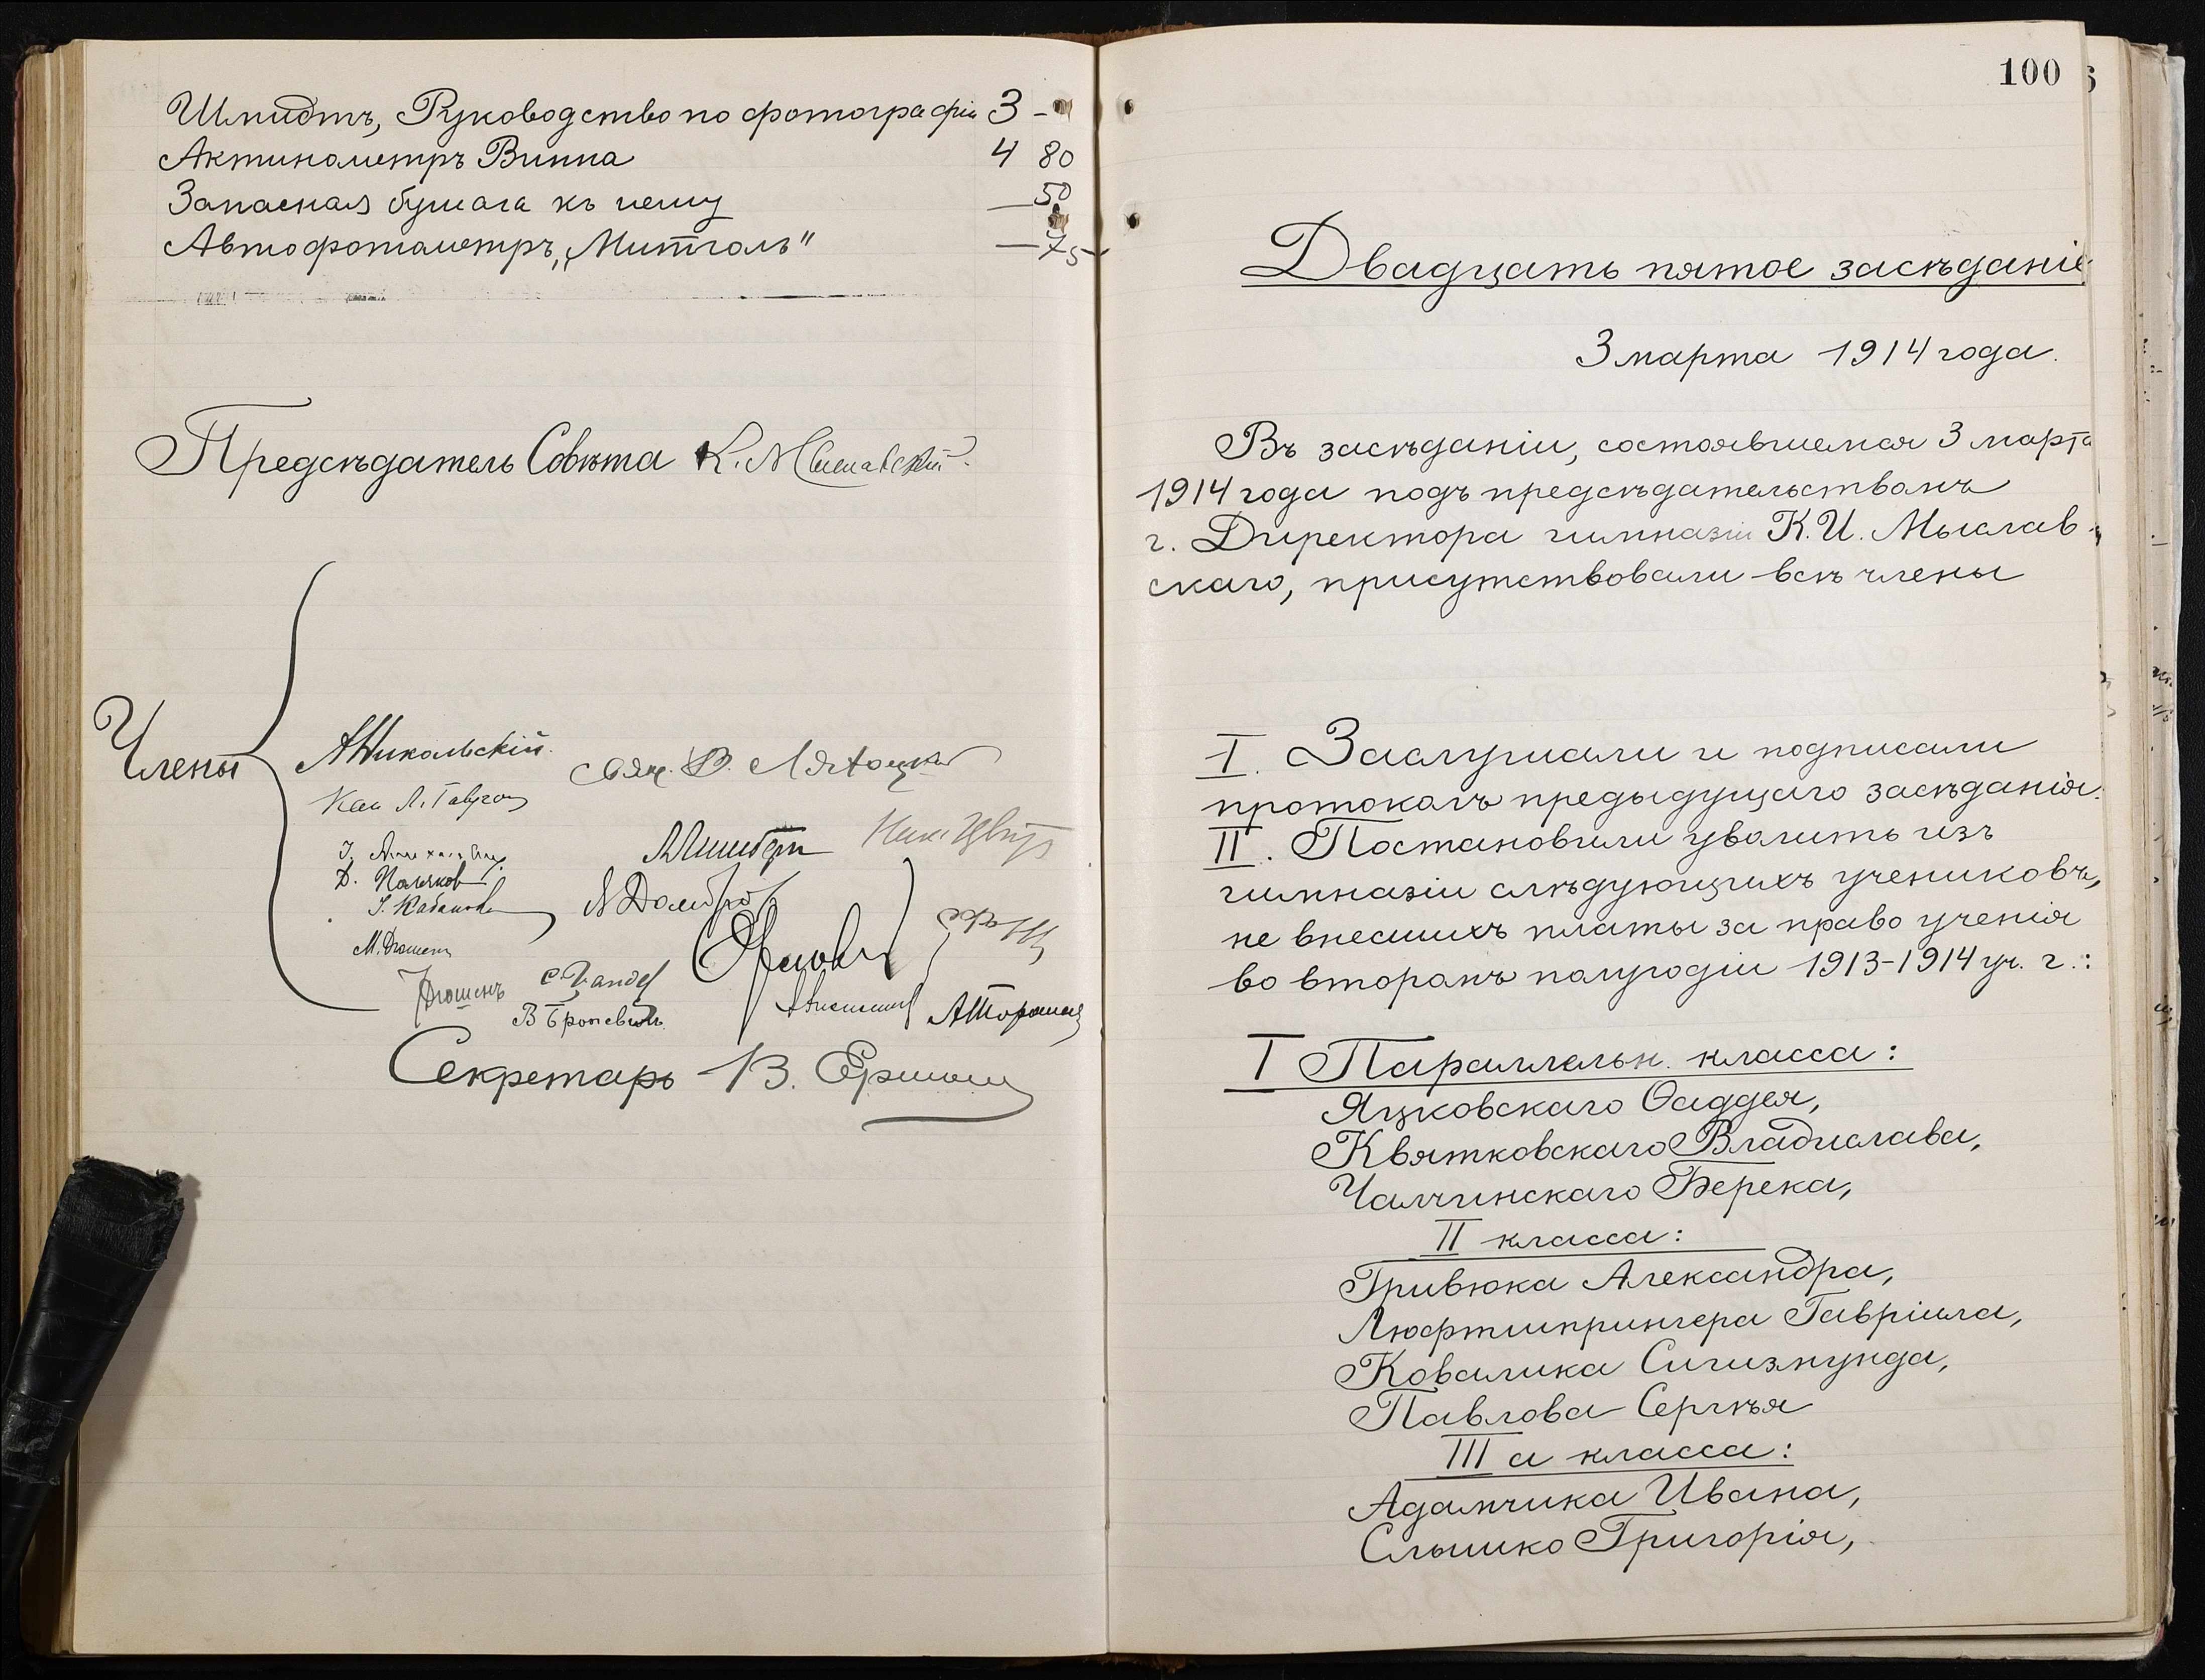 Шмидтъ, Руководство по фотографіи 3 -
Актинометръ Винна 4 80
Запасная бумага къ нему — 50
Автофотометръ „Митголь" — 75
Предсѣдатель Совѣта К. Мыславскій
Члены
АНикольскій
Свящ. В.
Ник.
Д. Поляков
І. Кабанов
М. Дюшенъ
Дюшенъ
В Броневичъ
Секретарь В. Ершов
100
Двадцать пятое засѣданіе
3 марта 1914 года.
Въ засѣданіи, состоявшемся 3 марта
1914 года подъ предсѣдательствомъ
г. Директора гимназіи К. И. Мыслав-
скаго, присутствовали всѣ члены
I. Заслушали и подписали
протоколъ предыдущаго засѣданія.
II. Постановили уволить изъ
гимназіи слѣдующихъ учениковъ,
не внесшихъ платы за право ученія
во второмъ полугодіи 1913-1914 уч. г.:
I Параллельн. класса:
Яцковскаго Ѳаддея,
Квятковскаго Владислава,
Чалчинскаго Берека,
II класса:
Гривюка Александра,
Люфтшпрингера Гавріила,
Ковалика Сигизмунда,
Павлова Сергѣя
III а класса:
Адамчика Ивана,
Слышко Григорія,